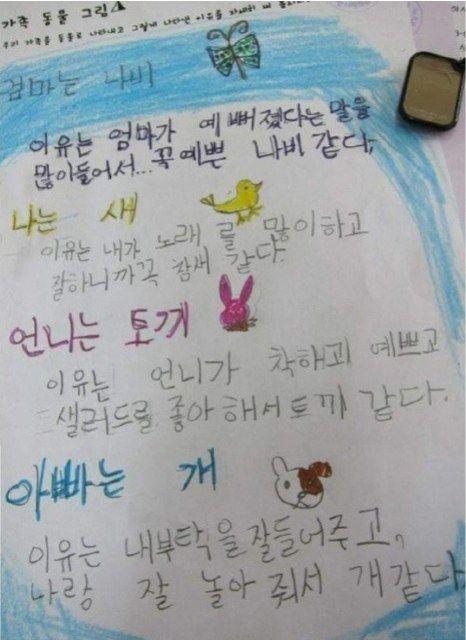 가족 동물 그림
우리 가족을 동물로 나타내고 그렇게 나타낸 이유를 자세히 써
엄마는 나비
이유는 엄마가 예뻐졌다는 말을
많이들어서... 꼭 예쁜 나비 같다,
나는 새
이유는 내가 노래를 많이하고
잘하니까꼭 참새 같다.
언니는 토끼
이유는 언니가 착해고 예쁘고
샐러드를 좋아해서토끼 같다.
아빠는 개
이유는 내부탁을잘들어주고,
나랑 잘 놀아 줘서 개같다